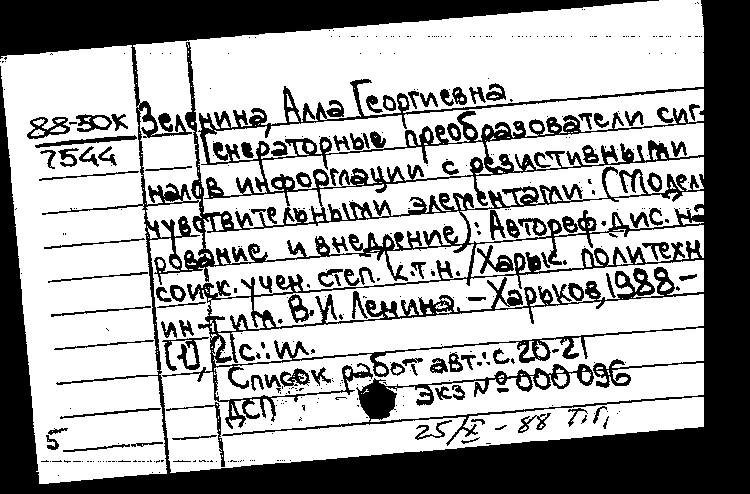 88-50К
7544
Зеленина, Алла Георгиевна.
Генераторные преобразователи сиг-
налов информации с резистивными
чувствительными элементами: (Модели
рование и внедрение): Автореф. дис. на
соиск. учен. степ. к.т.н. /Харьк. политехн
ин-т им. В.И. Ленина. – Харьков, 1988. –
[1], 21с.: ил.
Список работ авт.: с. 20-21
ДСП Экз № 000 096
25/X - 88 П.П.
5